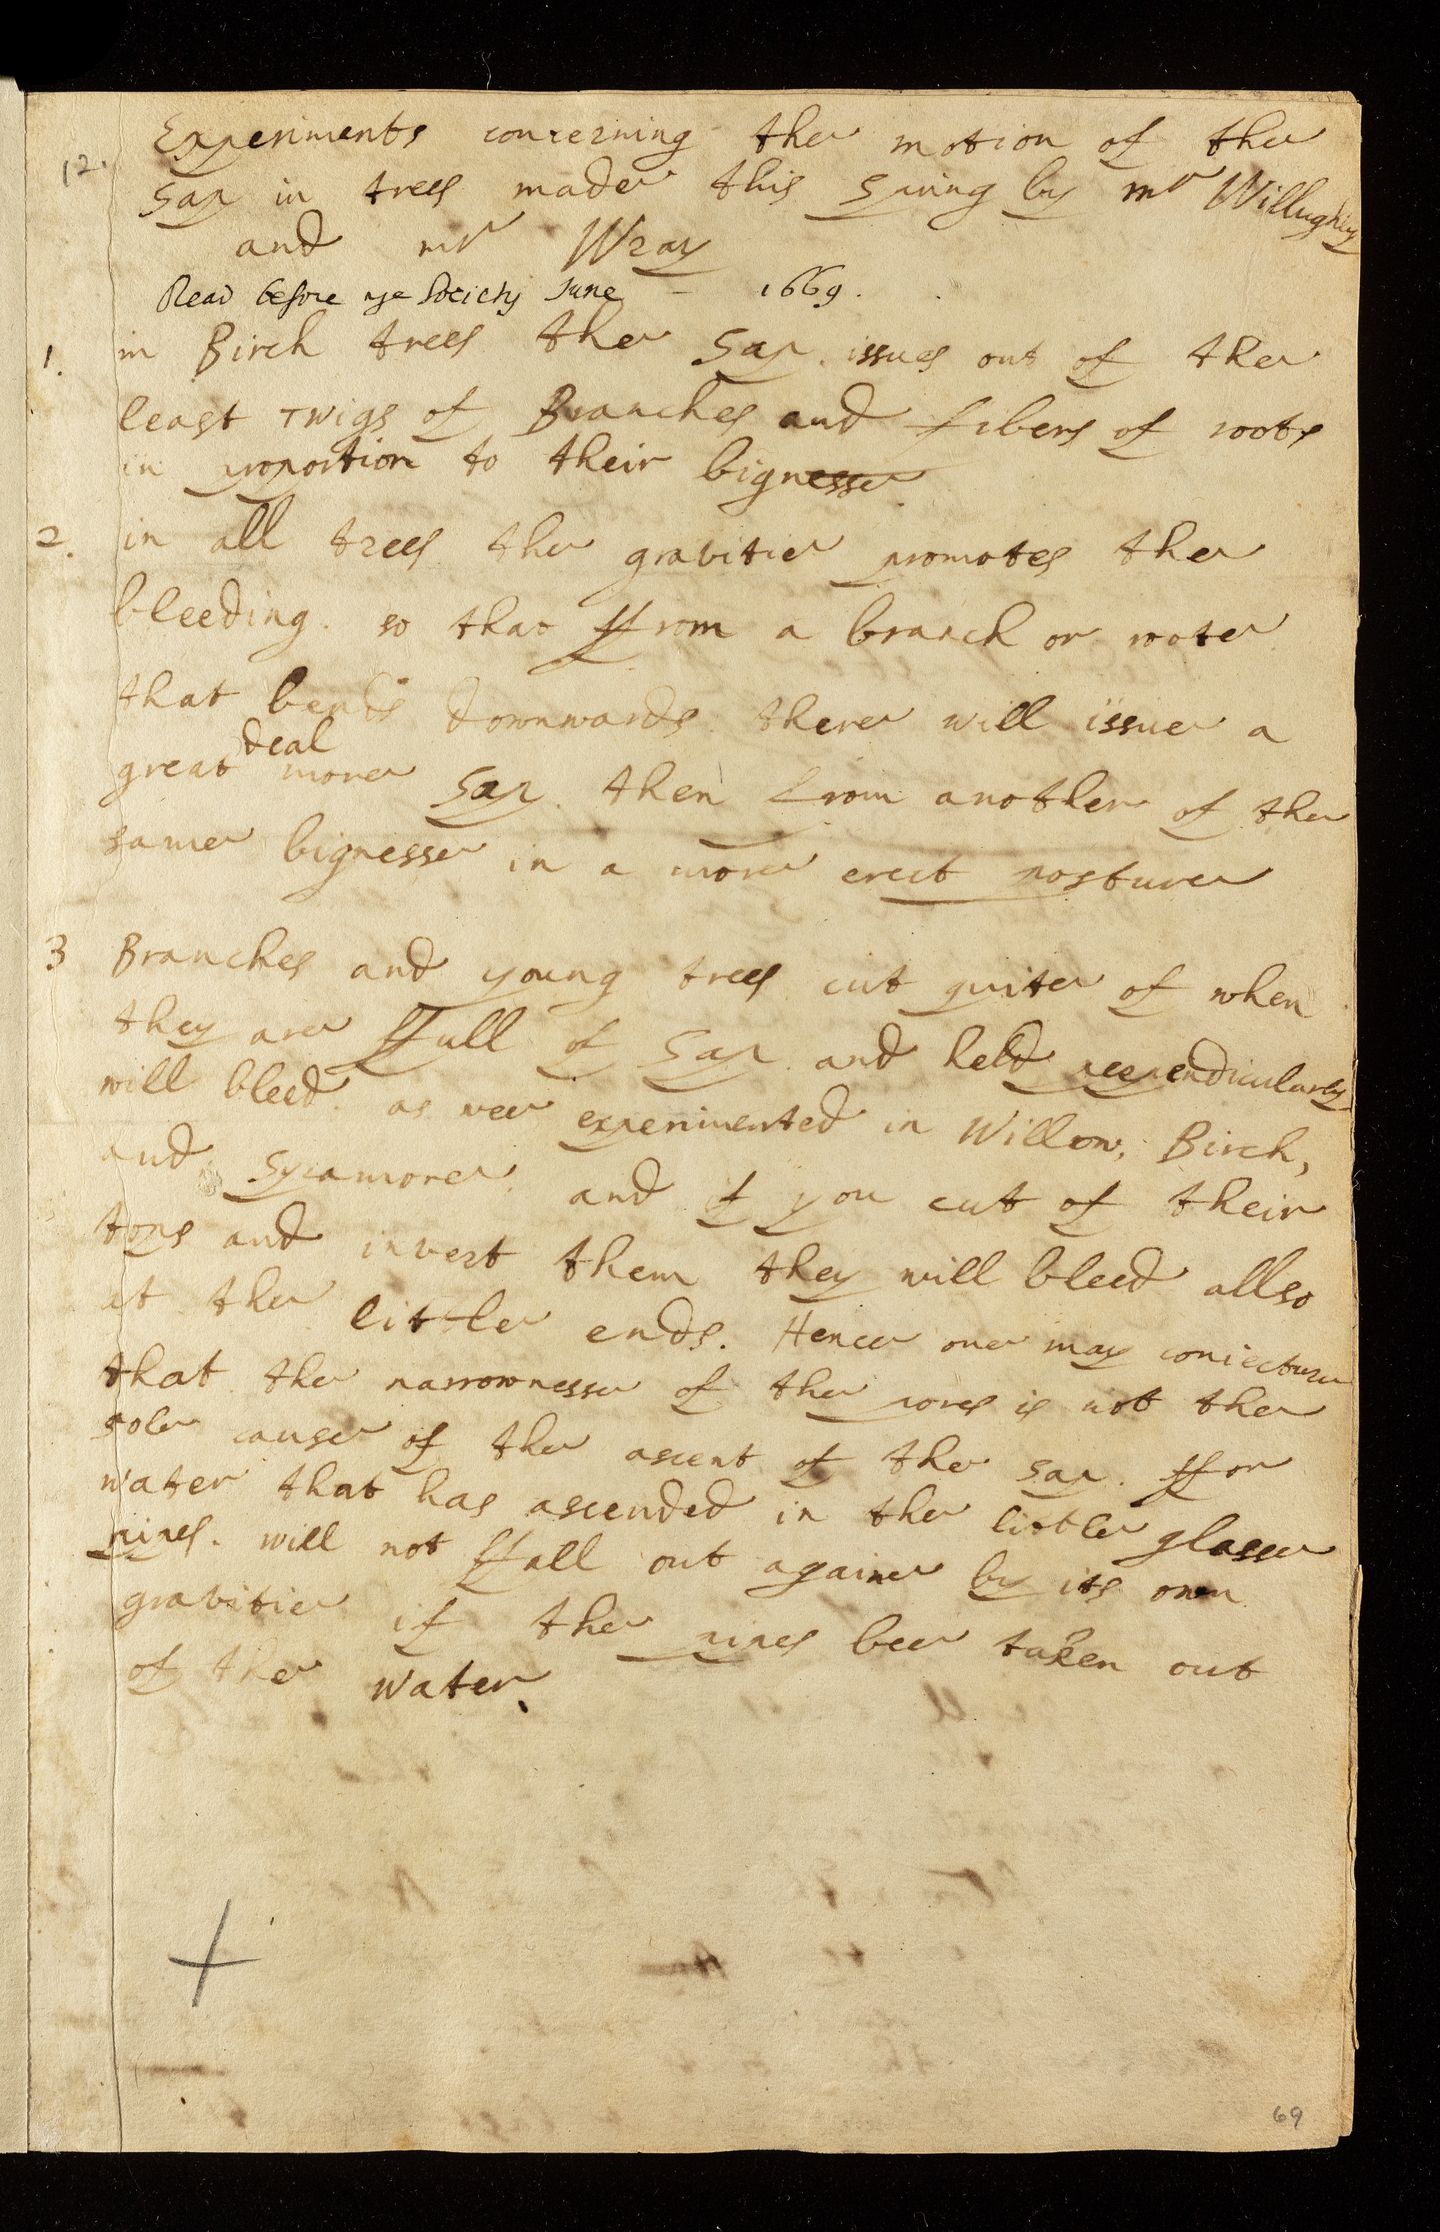 12.
Experiments concerning the motion of the
Sap in trees made this Spring by mr Willughby
and mr Wray
Read before ye Society June – 1669.
1. in Birch trees the Sap issues out of the
least twigs of Branches and fibers of roots
in proportion to their bignesse
2. in all trees the gravitie promotes the
bleeding. so that ffrom a branch or roote
that bends downwards there will issue a
deal
great more Sap then from another of the
same bignesse in a more erect posture
3 Branches and young trees cut quite of when
they are ffull of Sap and held perpendicularly
will bleed. as wee experimented in Willow, Birch,
and Sycamore and if you cut of their
tops and invert them they will bleed allso
at the little ends. Hence one may coniecture
that the narrownesse of the pores is not the
sole cause of the ascent of the sap. ffor
water that has ascended in the little glasse
pipes. will not ffall out againe by its own
gravitie if the pipes bee taken out
of the water.
69